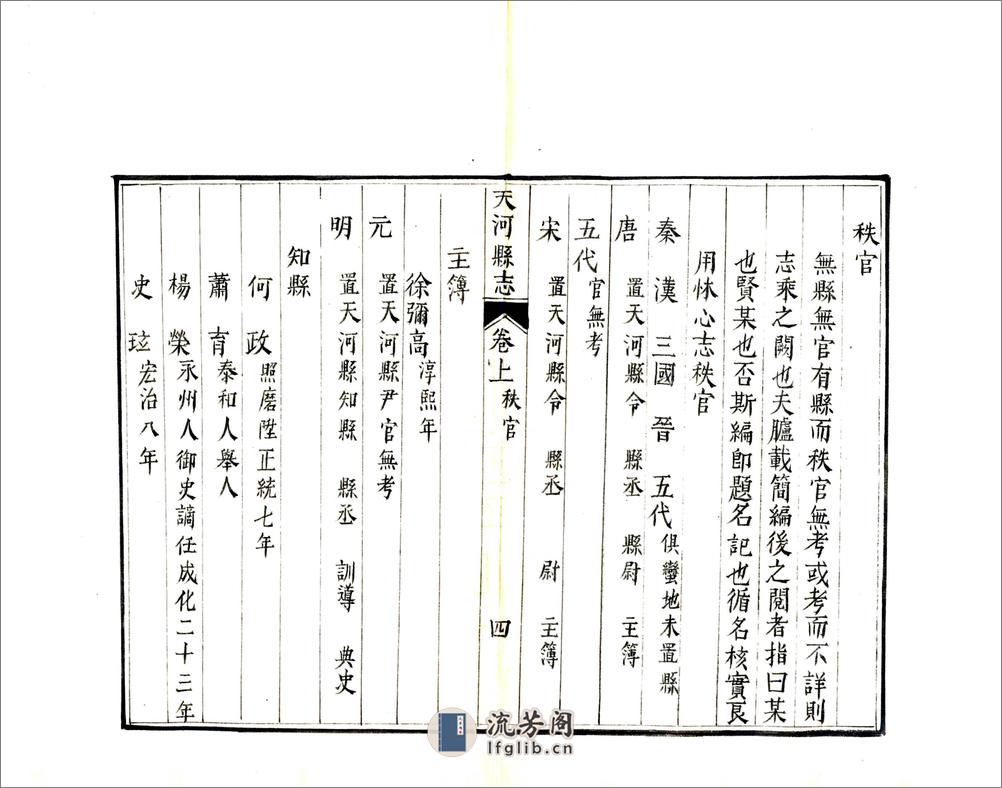 秩官
無縣無官有縣而秩官無考或考而不詳則
志乘之闕也夫臚載簡編後之閱者指曰某
也賢某也否斯編卽題名記也循名核實良
用怵心志秩官
秦 漢 三國 晉 五代 俱蠻地未置縣
唐 置天河縣令 縣丞 縣尉 主簿
五代 官無考
宋 置天河縣令 縣丞 尉 主簿
天河縣志 卷上 秩官 四
主簿
徐彌高 淳熙年
元 置天河縣尹官無考
明 置天河縣知縣 縣丞 訓導 典史
知縣
何政 照磨陞正統七年
蕭育 泰和人舉人
楊榮 永州人御史謫任成化二十三年
史玹 宏治八年
流芳阁
lfglib.cn